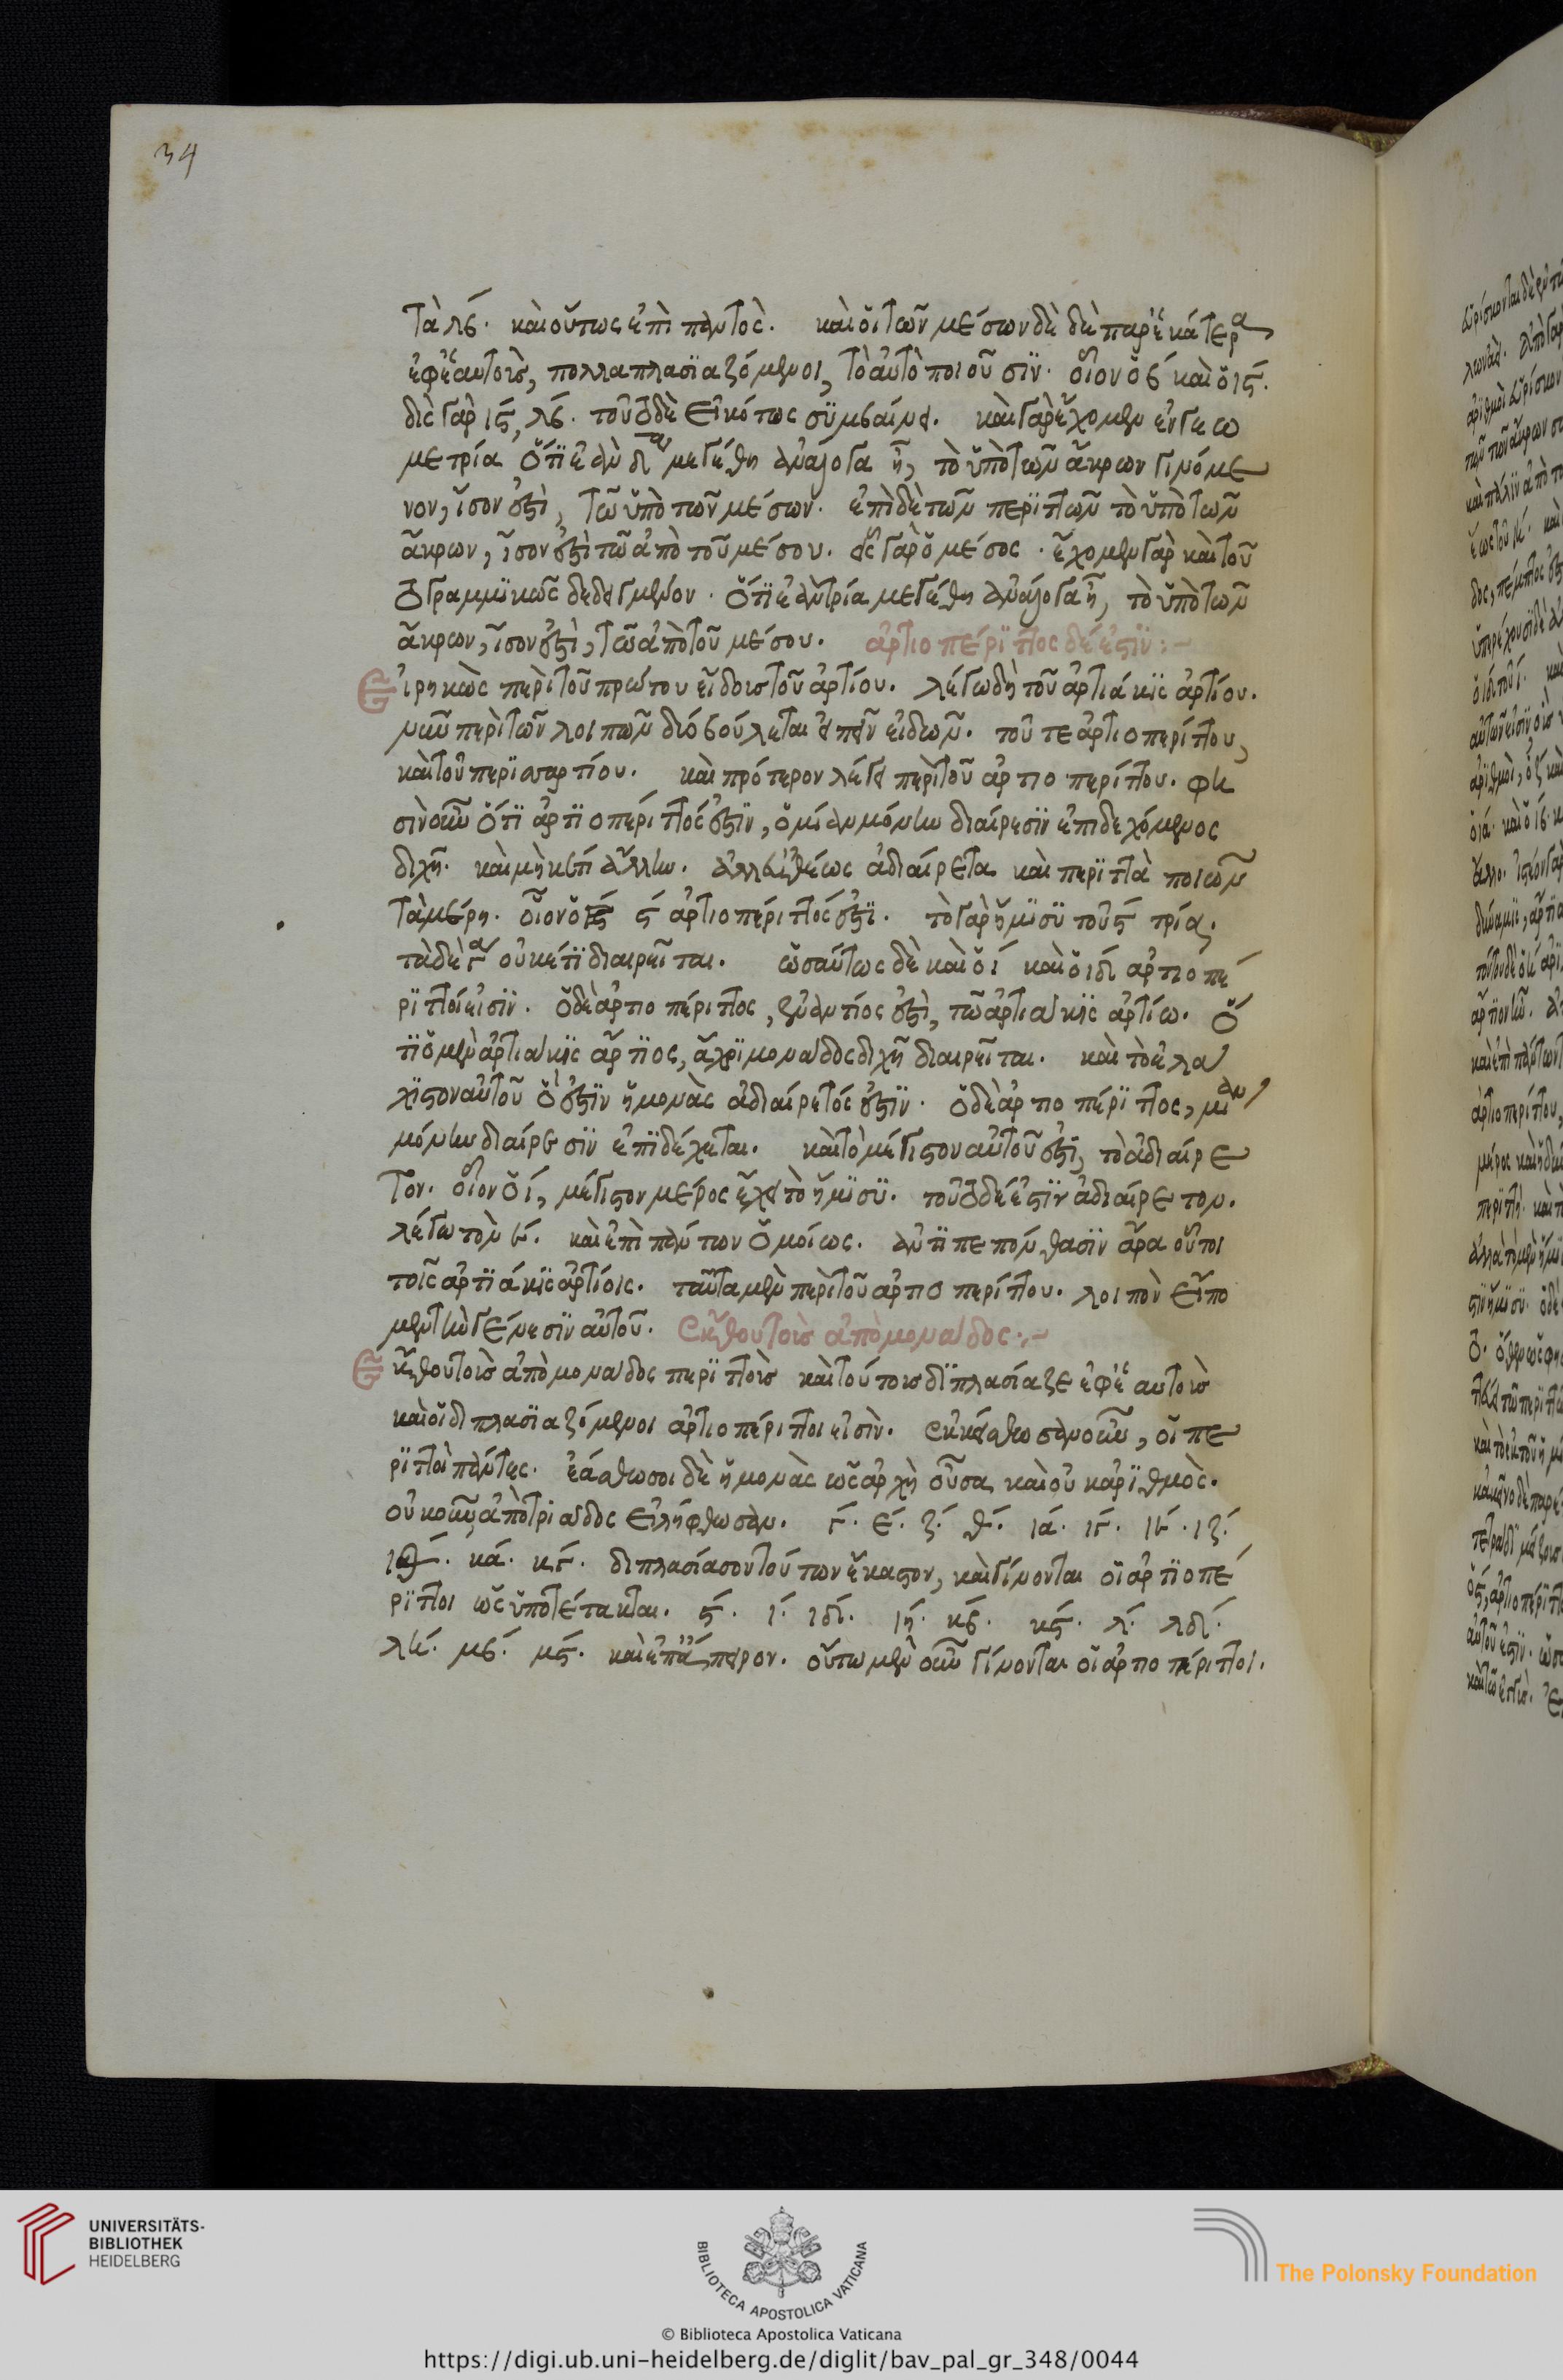 34
τὰ λβ. καὶ οὕτως ἐπὶ παντός. καὶ οἱ τῶν μέσων δὲ δὲ παρ' ἑκάτερα
ἐφ' ἑαυτοῖς, πολλαπλασιαζόμενοι, τὸ αὐτὸ ποιοῦσιν. οἷον ὁ β καὶ ὁ ις.
δὶς γὰρ ις, λβ. τοῦτο δὲ εἰκότως συμβαίνει. καὶ γὰρ ἔχομεν ἐν γεω
μετρία ὅτι ἐὰν δ μεγέθη ἀνάλογα ᾖ, τὸ ὑπὸ τῶν ἄκρων γινόμε
νον, ἴσον ἐστὶ, τῶ ὑπὸ τῶν μέσων. ἐπὶ δὲ τῶν περιττῶν τὸ ὑπὸ τῶν
ἄκρων, ἴσον ἐστὶ τῶ ἀπὸ τοῦ μέσου. εἷς γὰρ ὁ μέσος. ἔχομεν γὰρ καὶ τοῦ
το γραμμικῶς δεδειγμένον. ὅτι ἐὰν τρία μεγέθη ἀνάλογα ᾖ, τὸ ὑπὸ τῶν
ἄκρων, ἴσον ἐστὶ, τῶ ἀπὸ τοῦ μέσου. ἀρτιοπέριττος δέ ἐστιν:~
Εἰρηκὼς περὶ τοῦ πρώτου εἴδους τοῦ ἀρτίου. λέγω δὴ τοῦ ἀρτιάκις ἀρτίου.
νῦν περὶ τῶν λοιπῶν δύο βούλεται εἰπεῖν εἰδῶν. τοῦ τε ἀρτιοπερίττου,
καὶ τοῦ περισσαρτίου. καὶ πρότερον λέγει περὶ τοῦ ἀρτιοπερίττου. φη
σὶν οὖν ὅτι ἀρτιοπέριττός ἐστιν, ὁ μίαν μόνην διαίρεσιν ἐπιδεχόμενος
διχῆ. καὶ μὴκέτι ἄλλην. ἀλλ' εὐθέως ἀδιαίρετα καὶ περιττὰ ποιῶν
τὰ μέρη. οἷον ὁ ς ἀρτιοπέριττός ἐστι. τὸ γὰρ ἥμισυ τοῦ ς τρία.
τὰ δὲ γ οὐκέτι διαιρεῖται. ὡσαύτως δὲ καὶ ὁ ι καὶ ὁ ιδ ἀρτιοπέ
ριττοί εἰσιν. ὁ δὲ ἀρτιοπέριττος, ἐναντίος ἐστὶ, τῶ ἀρτιάκις ἀρτίω. ὅ
τι ὁ μὲν ἀρτιάκις ἄρτιος, ἄχρι μονάδος διχῆ διαιρεῖται. καὶ τὸ ἐλά
χιστον αὐτοῦ ὅ ἐστιν ἡ μονὰς ἀδιαίρετός ἐστιν. ὁ δὲ ἀρτιοπέριττος, μίαν
μόνην διαίρεσιν ἐπιδέχεται. καὶ τὸ μέγιστον αὐτοῦ ἐστι, τὸ ἀδιαίρε
τον. οἷον ὁ ι, μέγιστον μέρος ἔχει τὸ ἥμισυ. τοῦτο δέ ἐστιν ἀδιαίρετον.
λέγω τὸν ε. καὶ ἐπὶ πάντων ὁμοίως. ἀντιπεπόνθασιν ἄρα οὗτοι
τοῖς ἀρτιάκις ἀρτίοις. ταῦτα μὲν περὶ τοῦ ἀρτιοπερίττου. λοιπὸν εἴπο
μεν τὴν γένεσιν αὐτοῦ. ἐκκείσθω τοὺς ἀπὸ μονάδος:~
Ἐκθοῦ τοὺς ἀπὸ μονάδος περιττοὺς καὶ τούτους διπλασίαζε ἐφ' ἑαυτοὺς
καὶ οἱ διπλασιαζόμενοι ἀρτιοπέριττοι εἰσὶν. ἐκκείσθωσαν οὖν, οἱ πε
ριττοὶ πάντες. ἐάσθωσοι δὲ ἡ μονὰς ὡς ἀρχὴ οὖσα καὶ οὐκ ἀριθμὸς.
οὐκοῦν ἀπὸ τριάδος εἰλήφθωσαν. γ. ε. ζ. θ. ια. ιγ. ιε. ιζ.
ιθ. κα. κγ. διπλασίασον τούτων ἕκαστον, καὶ γίνονται οἱ ἀρτιοπέ
ριττοι ὡς ὑποτέτακται. ς. ι. ιδ. ιη. κβ. κς. λ. λδ.
λη. μβ. μς. καὶ ἐπ' ἄπειρον. οὕτω μὲν οὖν γίνονται οἱ ἀρτιοπέριττοι.
UNIVERSITÄTS-
BIBLIOTHEK
HEIDELBERG
BIBLIOTECA APOSTOLICA VATICANA
The Polonsky Foundation
© Biblioteca Apostolica Vaticana
https://digi.ub.uni-heidelberg.de/diglit/bav_pal_gr_348/0044